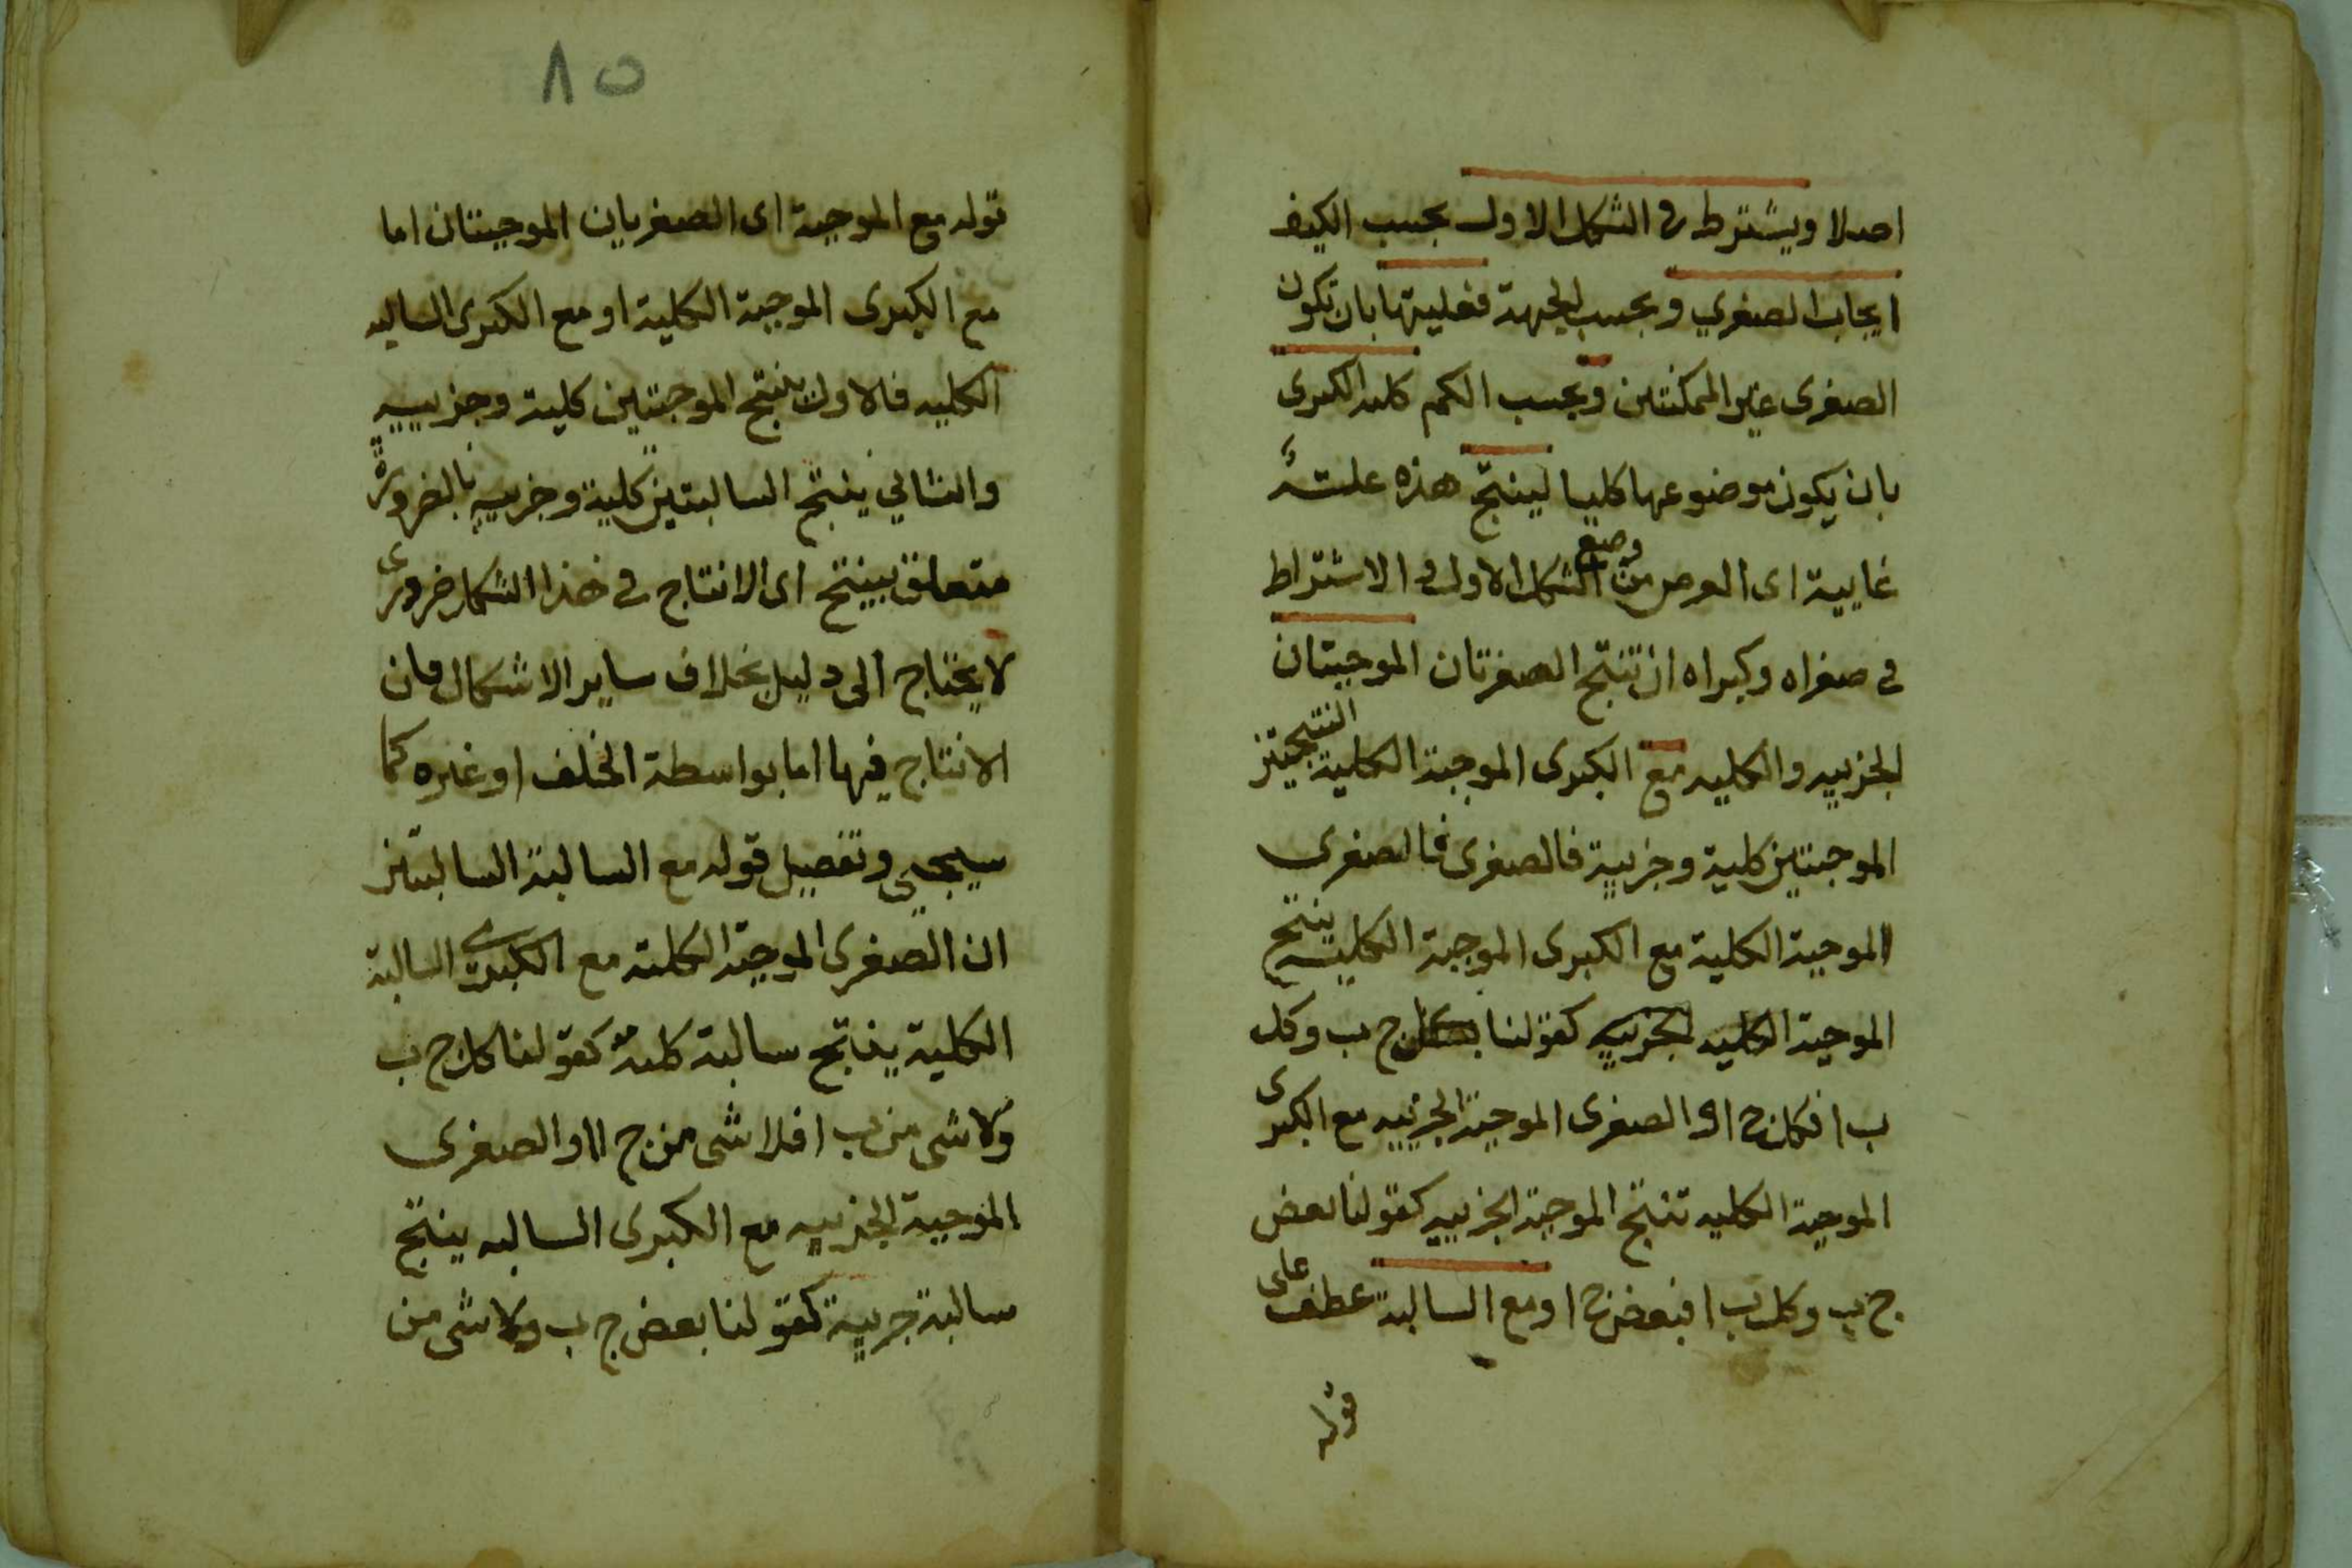 اصلا ويشترط فى الشكل الاول بحسب الكيف
ايجاب الصغري وبحسب الجهة فعليتها بان تكون
الصغرى غير الممكنتين وبحسب الكم كليه الكبرى
بان يكون موضوعها كليا لينتج هذه علته
غايية اى الغرض من وضع الشكل الاول فى الاشتراط
فى صغراه وكبراه ان تنتج الصغرتان الموجبتان
الجزييه والكليه مع الكبرى الموجبة الكلية النتيجتين
الموجبتين كلية وجزيية فالصغرى فالصغرى
الموجبة الكلية مع الكبرى الموجبة الكلية ينتج
الموجبة الكليه الجزييه كقولنا كل ج ب وكل
ب ا فكل ج ا والصغرى الموجبة الجزييه مع الكبرى
الموجبة الكليه تنتج الموجبة الجزييه كقولنا بعض
ج ب وكل ب ا فبعض ج ا ومع السالبة عطف على
قوله
٨٥
قوله مع الموجبة اى الصغريان الموجبتان اما
مع الكبرى الموجبة الكلية او مع الكبرى السالبه
الكليه فالاول ينتج الموجبتين كلية وجزييه
والثاني ينتج السالبتين كلية وجزييه بالضرورة
متعلق بينتج اى الانتاج فى هذا الشكل ضرورى
لا يحتاج الى دليل بخلاف ساير الاشكال فان
الانتاج فيها اما بواسطة الخلف او غيره كما
سيجيى وتفصيل قوله مع السالبة السالبتين
ان الصغرى الموجبة الكلية مع الكبرى السالبة
الكلية ينتج سالبة كلية كقولنا كل ج ب
ولا شى من ب ا فلا شى من ج ا والصغرى
الموجبة الجزييه مع الكبرى السالبه ينتج
سالبة جزيية كقولنا بعض ج ب ولا شى من